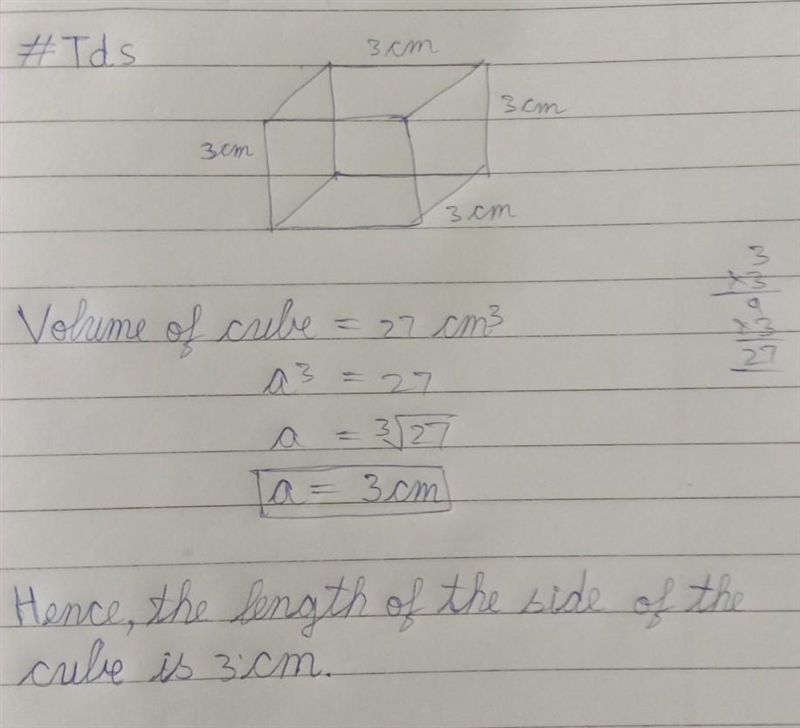 #Tds
3cm
3cm
3cm
3cm
3
×3
9
×3
27
Volume of cube = 27 cm³
a³ = 27
a = ∛27
a = 3cm
Hence, the length of the side of the
cube is 3 cm.